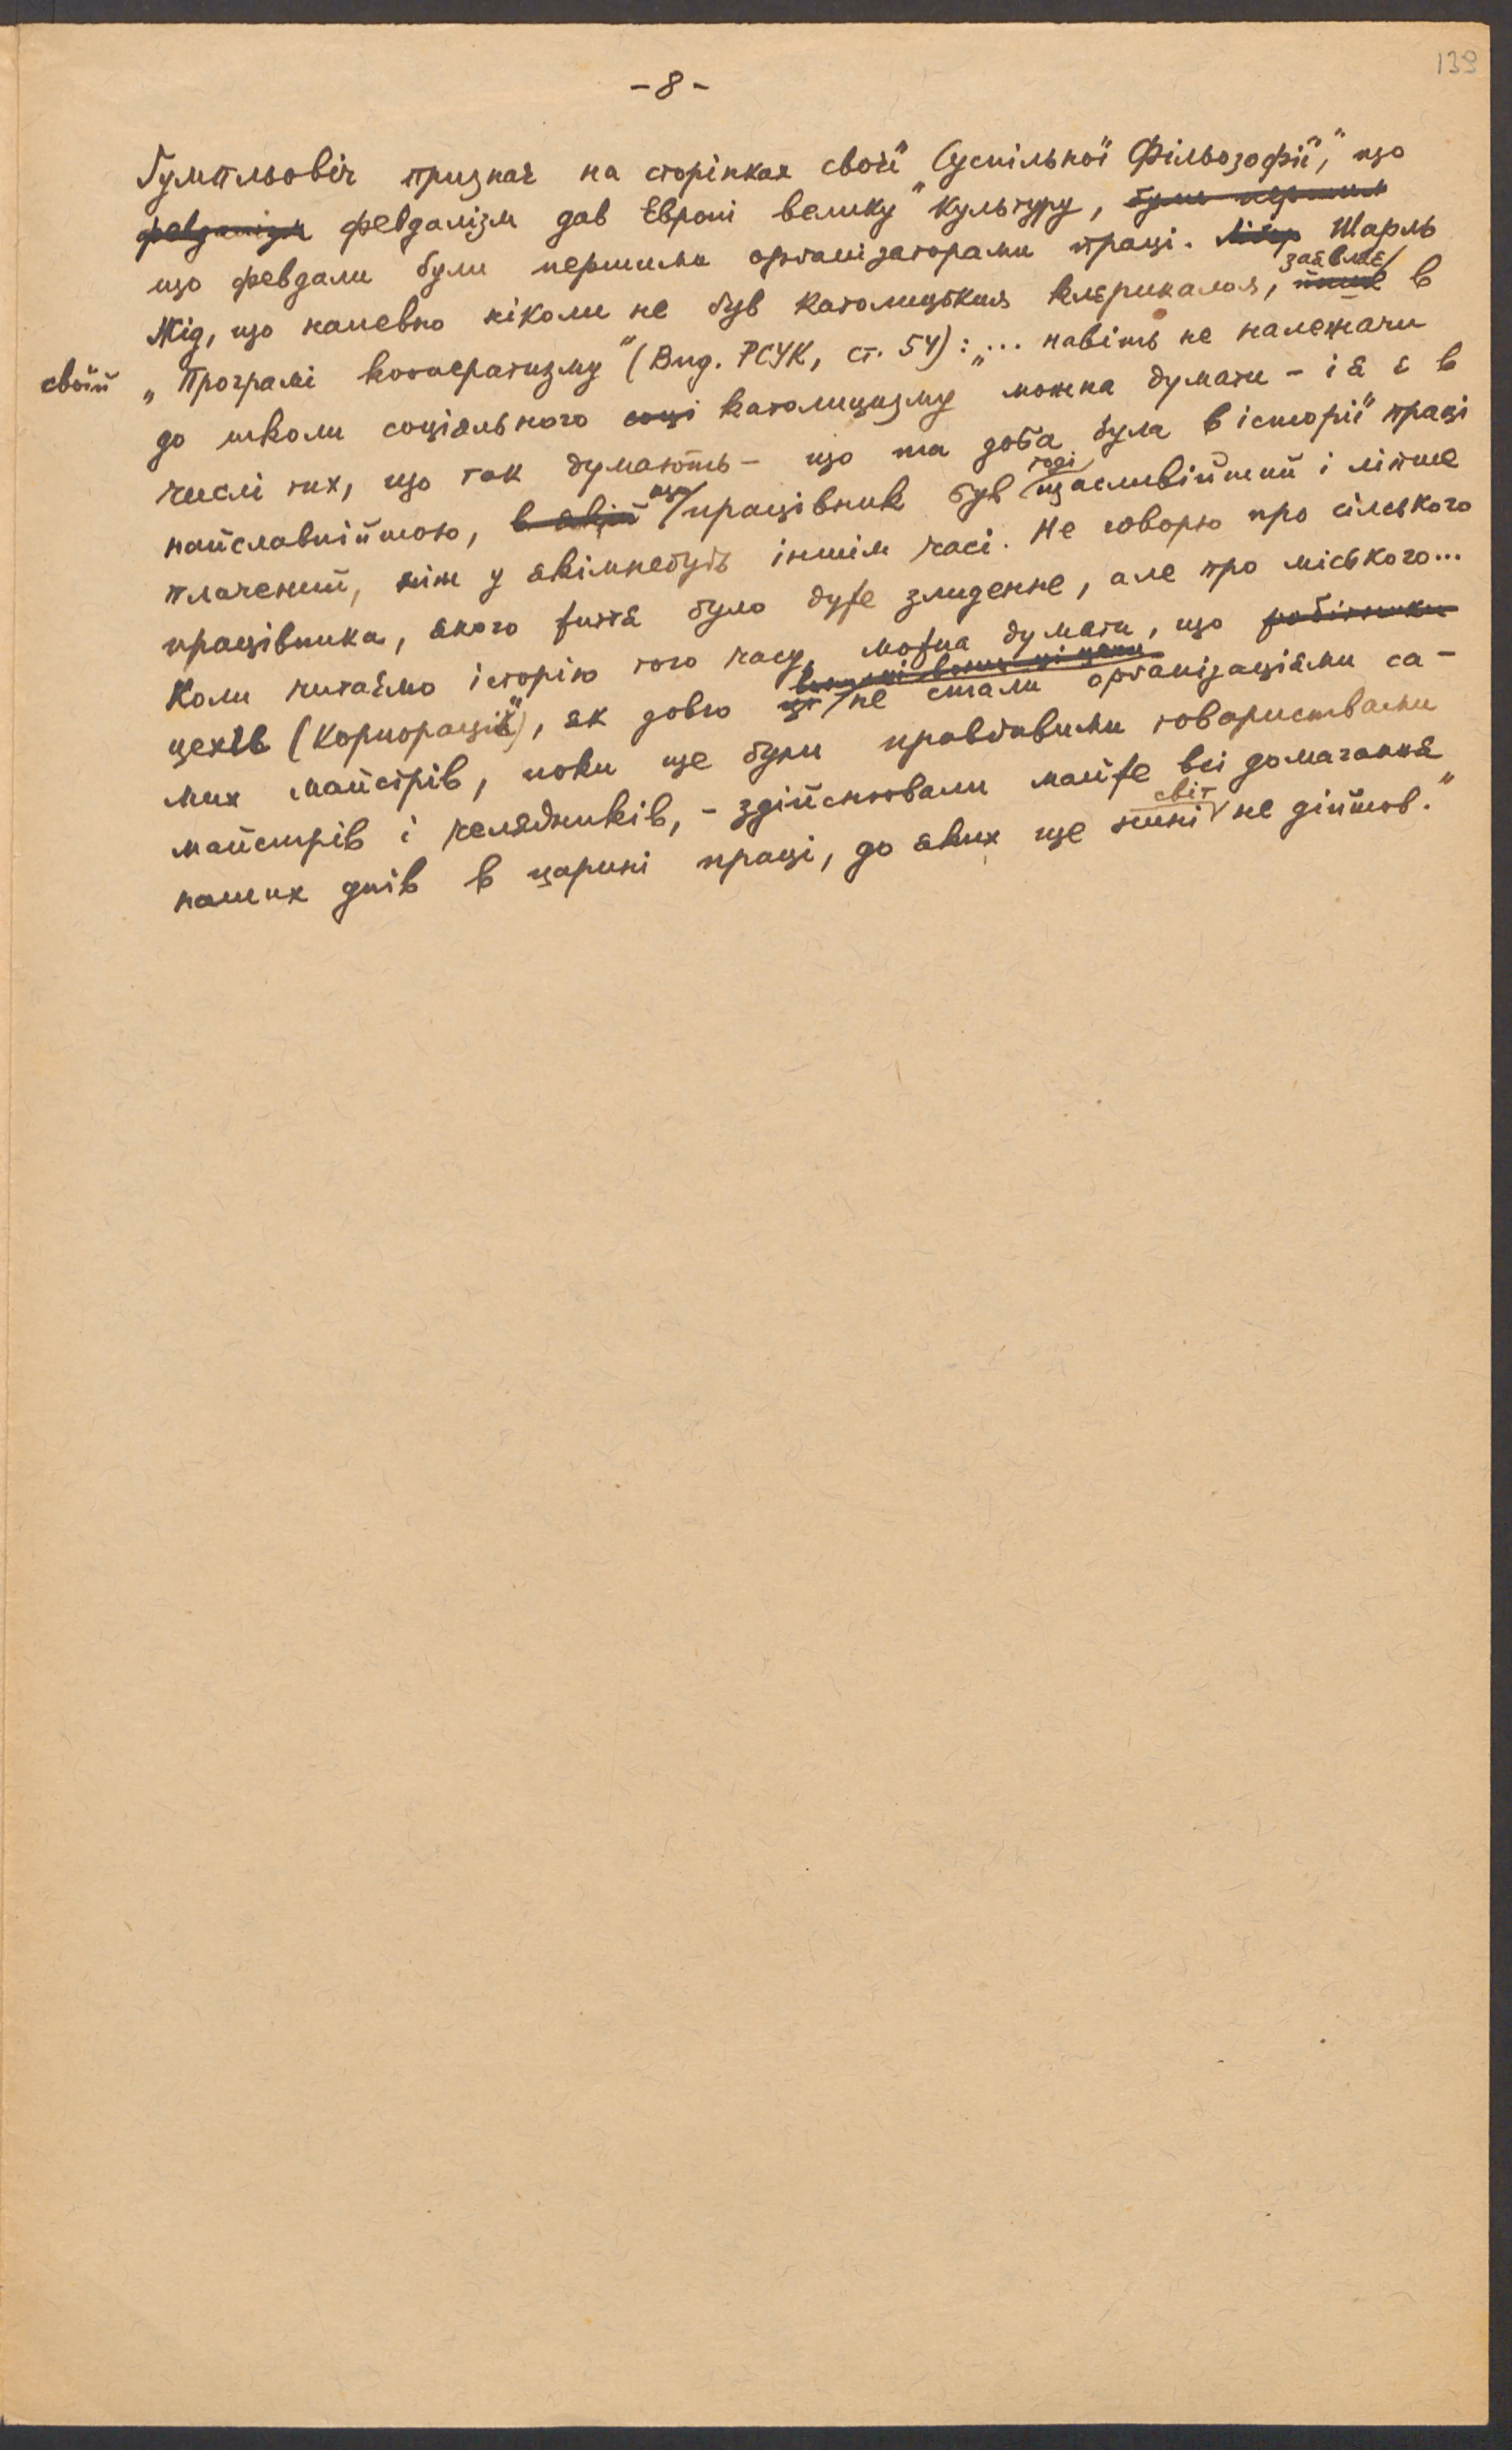 139
- 8 -
Ґумпльовіч признає на сторінках своєї "Суспільної Фільозофії", що
февдалізм февдалізм дав Европі велику культуру, були першими
що февдали були першими орґанізаторами праці. Шарль
Жід, що напевно ніколи не був католицьким клєрикалом, заявляє/ пише в
своїй „Програмі кооператизму" (Вид. РСУК, ст. 54): „... навіть не належачи
до школи соціяльного соці католицизму можна думати - і я є в
числі тих, що так думають - що та доба була в історії праці
найславнійшою, в якій що/ працівник був тоді/ щасливійший і ліпше
плачений, ніж у якімнебудь іншім часі. Не говорю про сільського
працівника, якого життя було дуже злиденне, але про міського...
Коли читаємо історію того часу, можна думати, що робітники
цехів (корпорацій), як довго ці не стали орґанізаціями са-
мих майстрів, поки ще були правдивими товариствами
майстрів і челядників, - здійснювали майже всі домагання
наших днів в царині праці, до яких ще нині світ не дійшов."